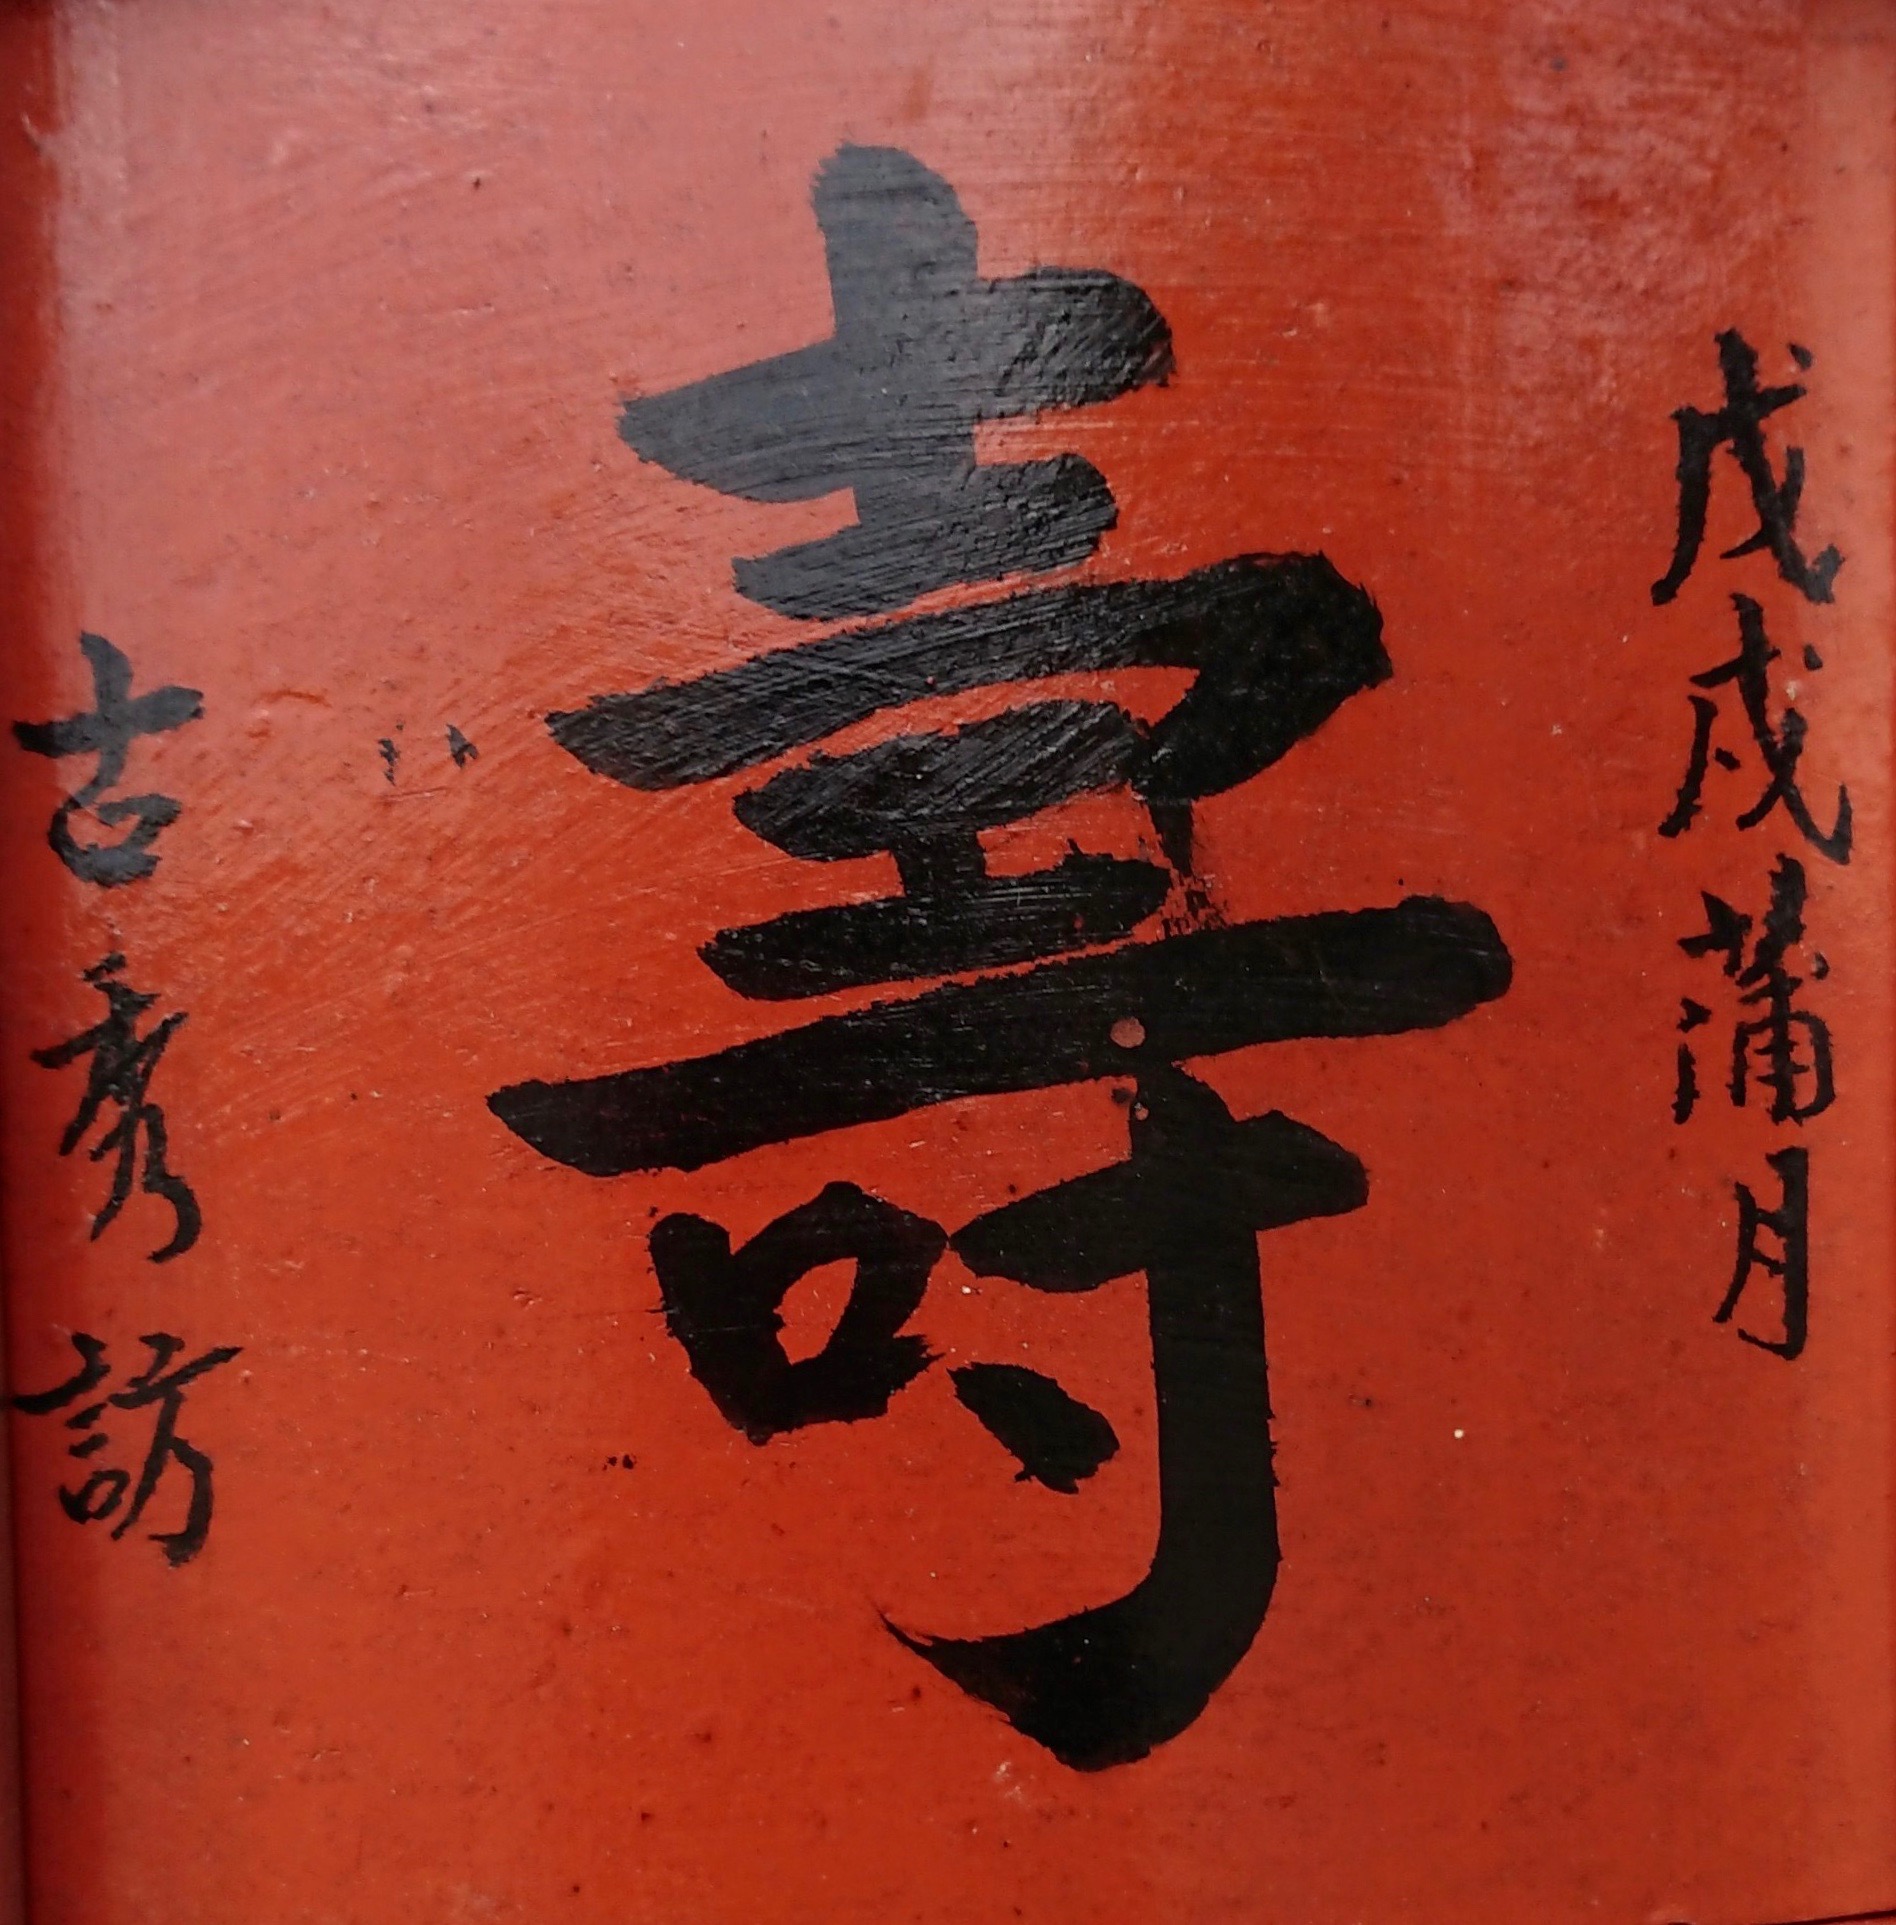 戊戌蒲月
壽
古秀訪